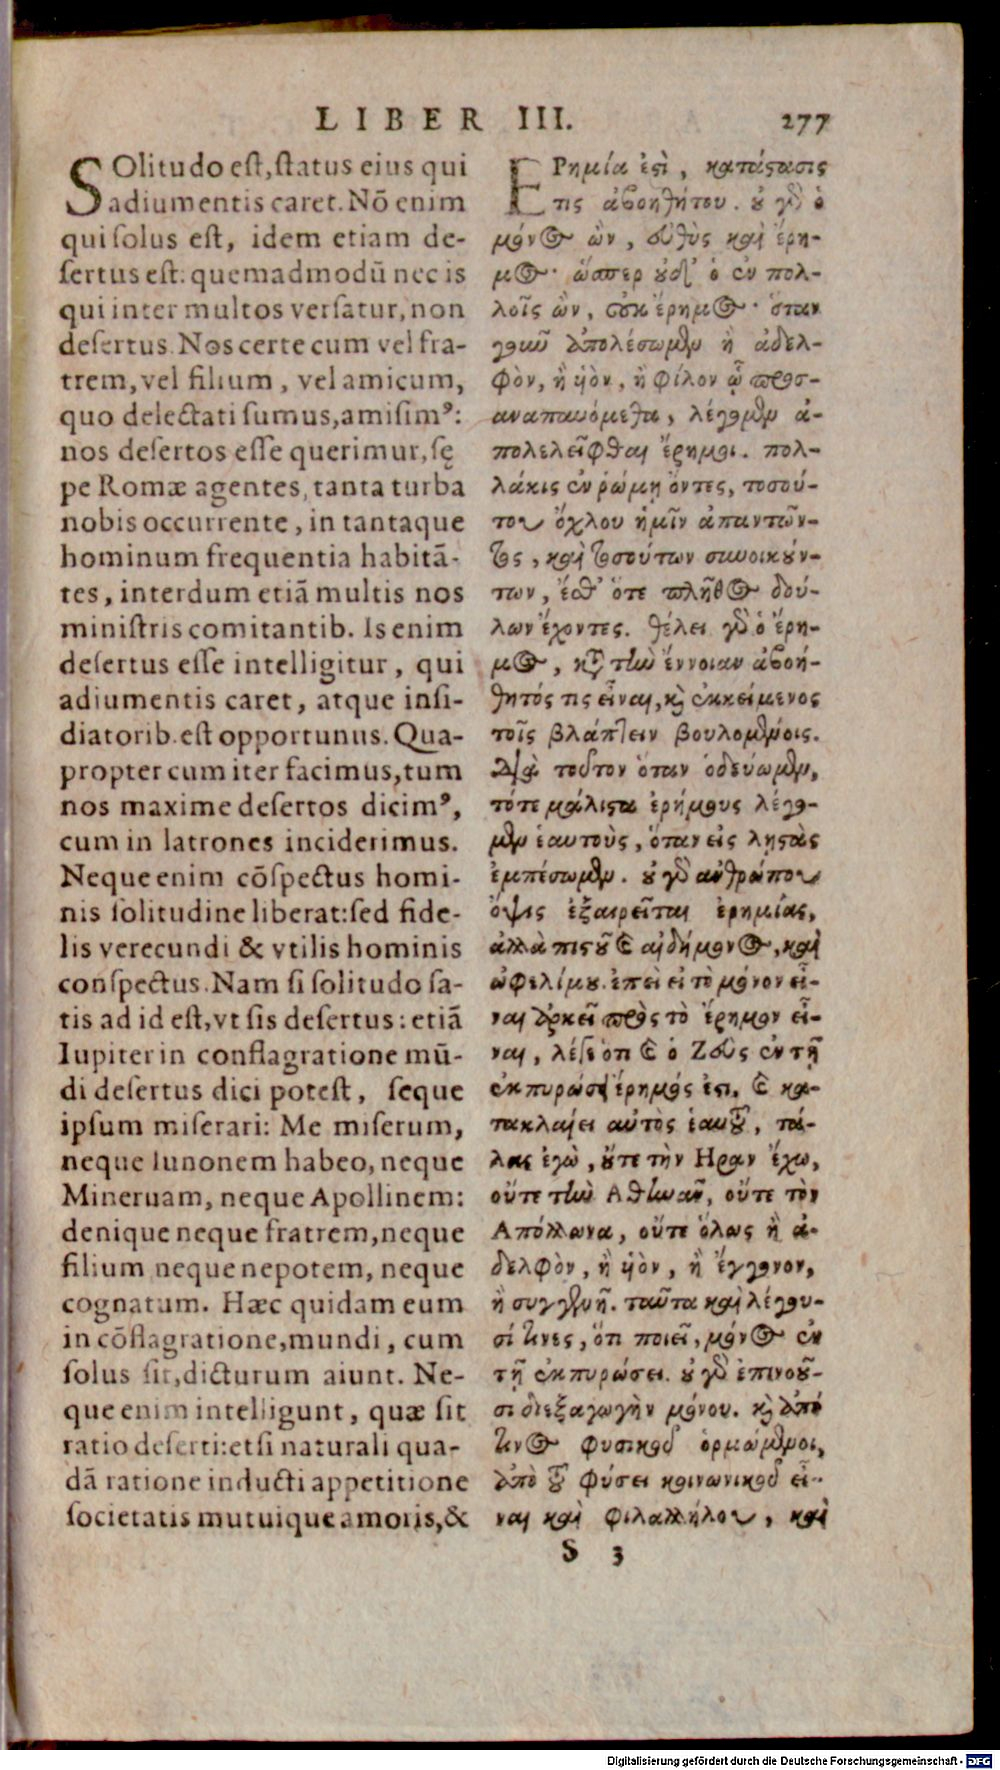 LIBER III. 277
SOlitudo eſt, ſtatus eius qui
adiumentis caret. Nõ enim
qui ſolus eſt, idem etiam de-
ſertus eſt: quemadmodũ nec is
qui inter multos verſatur, non
deſertus. Nos certe cum vel fra-
trem, vel filium, vel amicum,
quo delectati ſumus, amiſimꝰ:
nos deſertos eſſe querimur, ſę
pe Romæ agentes, tanta turba
nobis occurrente, in tantaque
hominum frequentia habitã-
tes, interdum etiã multis nos
miniſtris comitantib. Is enim
deſertus eſſe intelligitur, qui
adiumentis caret, atque inſi-
diatorib. eſt opportunus. Qua-
propter cum iter facimus, tum
nos maxime deſertos dicimꝰ,
cum in latrones inciderimus.
Neque enim cõſpectus homi-
nis ſolitudine liberat: ſed fide-
lis verecundi & vtilis hominis
conſpectus. Nam ſi ſolitudo ſa-
tis ad id eſt, vt ſis deſertus: etiã
Iupiter in conflagratione mũ-
di deſertus dici poteſt, ſeque
ipſum miſerari: Me miſerum,
neque Iunonem habeo, neque
Mineruam, neque Apollinem:
denique neque fratrem, neque
filium neque nepotem, neque
cognatum. Hæc quidam eum
in cõflagratione, mundi, cum
ſolus ſit, dicturum aiunt. Ne-
que enim intelligunt, quæ ſit
ratio deſerti: etſi naturali qua-
dã ratione inducti appetitione
ſocietatis mutuique amoris, &
ΕΡημία ἐϛὶ, κατάϛασις
τις ἀβοηθήτου. ȣ γδ ὁ
μόνος ὢν, εὐθὺς καὶ ἔρη-
μος· ὥσπερ ȣδ' ὁ ἐν πολ-
λοῖς ὢν, οὐκ ἔρημος· ὅταν
γοῦν ἀπολέσωμεν ἢ ἀδελ-
φὸν, ἢ υἱὸν, ἢ φίλον ᾧ προσ-
αναπαυόμεθα, λέγομεν ἀ-
πολελεῖφθαι ἔρημοι. πολ-
λάκις ἐν ῥώμῃ ὄντες, τοσού-
του ὄχλου ἡμῖν ἀπαντῶν-
τος, καὶ τοσούτων συνοικȣ́ν-
των, ἔσθ' ὅτε πλῆθος δού-
λων ἔχοντες. θέλει γδ ὁ ἔρη-
μος, κτ τὴν ἔννοιαν ἀβοή-
θητός τις εἶναι, κ̀ ἐκκείμενος
τοῖς βλάπτειν βουλομένοις.
Διὰ τοῦτον ὅταν ὁδεύωμεν,
τότε μάλιϛα ἐρήμους λέγο-
μεν ἑαυτοὺς, ὅταν εἰς λῃϛὰς
ἐμπέσωμεν. ȣ γδ ἀνθρώπου
ὄψις ἐξαιρεῖται ἐρημίας,
ἀλλὰ πιϛȣ͂ κ̀ αἰδήμονος, καὶ
ὠφελίμȣ. ἐπεὶ εἰ τὸ μόνον εἶ-
ναι ἀρκεῖ πρὸς τὸ ἔρημον εἶ-
ναι, λέγε ὅτι κ̀ ὁ Ζεὺς ἐν τῇ
ἐκπυρώσει ἔρημός ἐϛι. κ̀ κα-
τακλαίει αὐτὸς ἑαυτȣ͂, τά-
λας ἐγὼ, ȣ̓́τε τὴν Ηραν ἔχω,
οὔτε τὴν Αθηνᾶν, οὔτε τὸν
Απόλλωνα, οὔτε ὅλως ἢ ἀ-
δελφὸν, ἢ υἱὸν, ἢ ἔγγονον,
ἢ συγγενῆ. ταῦτα καὶ λέγου-
σί τινες, ὅτι ποιεῖ, μόνος ἐν
τῇ ἐκπυρώσει. ȣ γδ ἐπινοοῦ-
σι διεξαγωγὴν μόνου. κ̀ ἀπό
τινος φυσικοῦ ὁρμώμενοι,
ἀπὸ τȣ͂ φύσει κοινωνικοῦ εἶ-
ναι καὶ φιλαλλήλου, καὶ
S 3
Digitalisierung gefördert durch die Deutsche Forschungsgemeinschaft - DFG